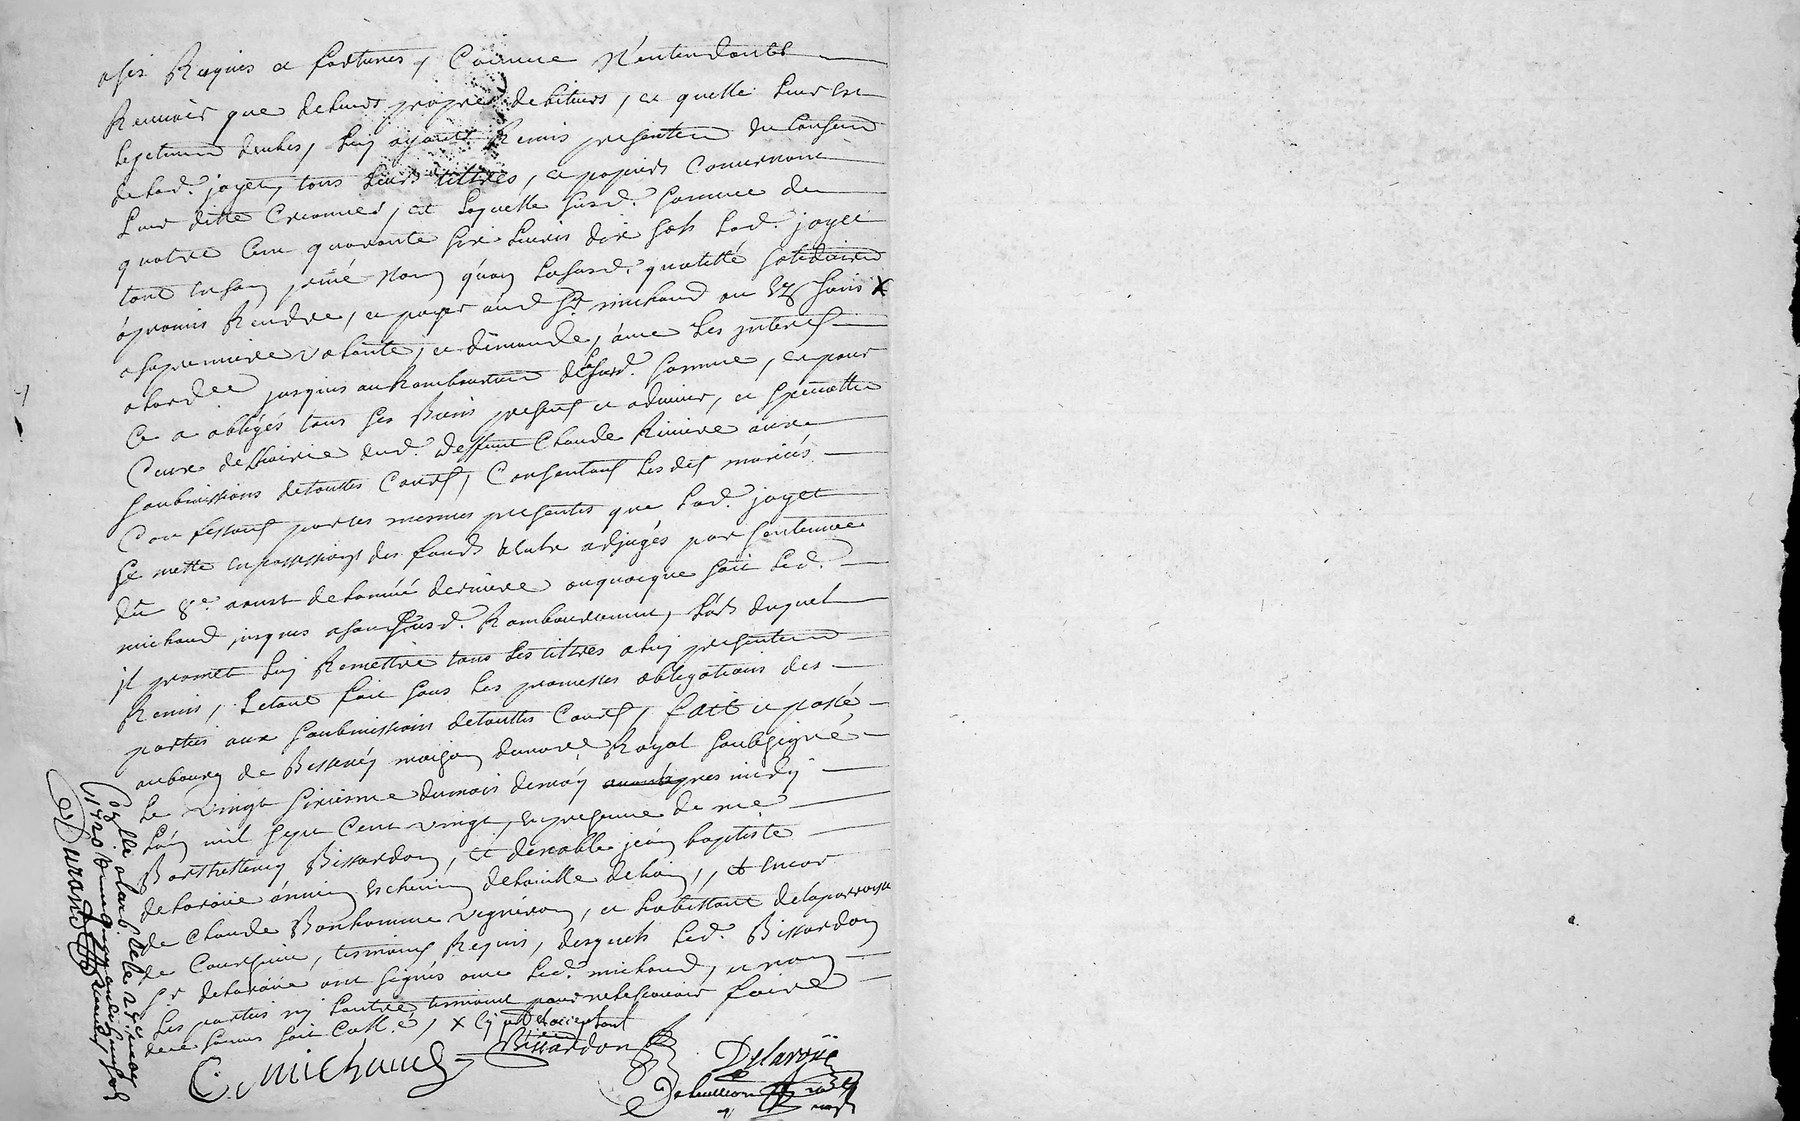 a ses Risques et fortunes, Comme N'entendants
Recevoir que de leurs propres debiteurs, et quelle leur est
legitimement deube, luy ayants Remis presentement du Consent
de lad. joyet, tous leurs tiltres, et papiers Concernant
leur ditte Creance, et laquelle susd. somme de
quatre Cent quarante six livres dix sols lad. joyet
tant en son privé Nom qu'en lasusd. qualitté solidairem
a promis Rendre, et payer aud Sr. michaud au 32 Sans x
a sa premiere volonté, et demande, avec les interest
jusques au Ramboursement de lasusd. somme, et pour
Ce a obligés tous ses Biens presents et advenir, et specialem
Ceux de l'hoirie dud. deffunt Claude Riviere aux
soubmissions de touttes Cours, Consentant lesdits mariés
Confessants par les mesmes presentes que lad. joyet
se mette en possession des fonds a elle adjugés par sentence
du 8e. aoust de l'année derniere ou quoique soit led.
michaud jusques a son susd. Ramboursement, lors duquel
il promet luy Remettre tous les tiltres a luy presentement
Remis, le tout fait sous les promesses obligations des
parties aux soubmissions de touttes Cours, fait et passé
au bourg de Bessenay maison du notre. Royal soubsigné
le vingt sixiesme du mois de may apres midy
l'an mil sept Cent vingt, en presence de me
Barthellemy Bissardon, et de noble jean baptiste
delaroüe ancien Eschevin de la ville de lion, et encor
de Claude Bonhomme vigneron, et habittant de la parroisse
de Courzieu, tesmoins Requis, desquels led. Bissardon
Sr delaroüe ont signés avec led. michaud, et non
les parties ny l'autre tesmoins pour ne le sçavoir faire
de ce enquis soit Cott.é, x Cy pnt et acceptant
C. Michaud
Bissardon
Delaroüe
Controllé a larb. le 27e may
1720
Durand